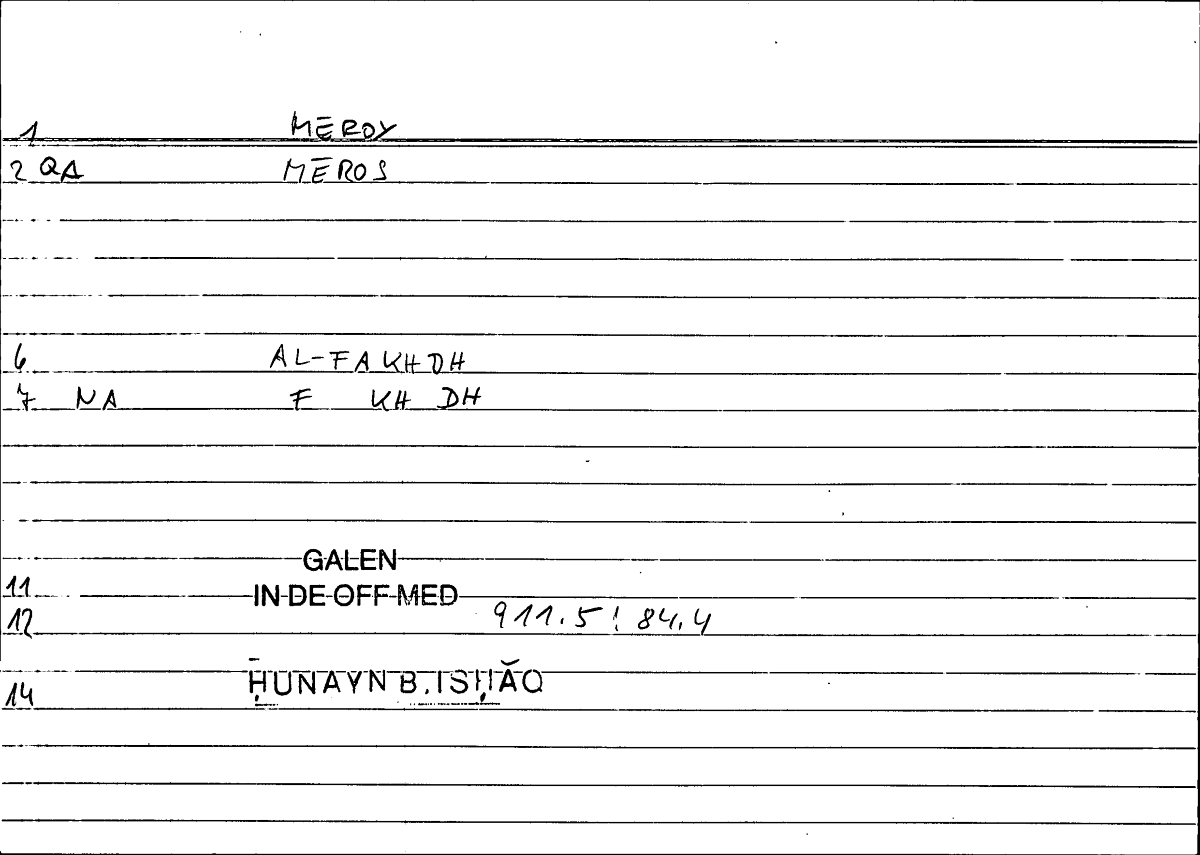 1 MĒROY
2 QA MĒROS
6 AL-FAKHDH
7 NA F KH DH
GALEN
11 IN DE OFF MED
12 911.5 : 84.4
14 ḤUNAYN B. ISḤĀQ